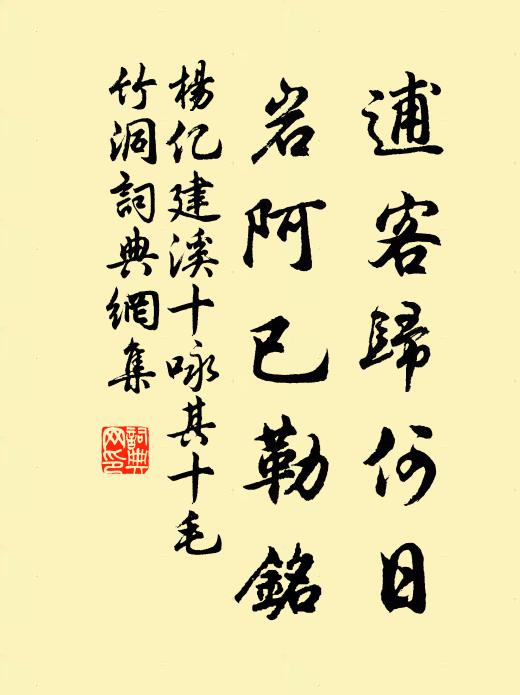 逋客歸何日
岩阿已勒銘
楊亿建溪十咏其十毛
竹洞詞典網集
詞典
网印